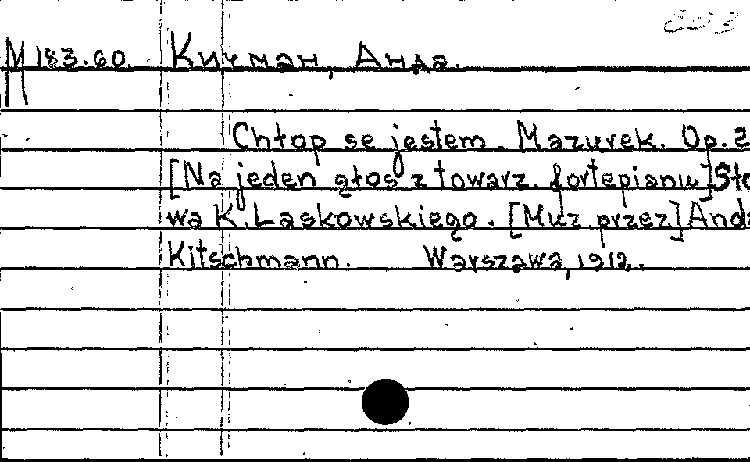 М 183.60. Кичман, Анда.
Chłop se jestem. Mazurek. Op. 2
[Na jeden głos z towarz. fortepianu] Sło
wa K. Laskowskiego. [Muz. przez] Anda
Kitschmann. Warszawa, 1912.